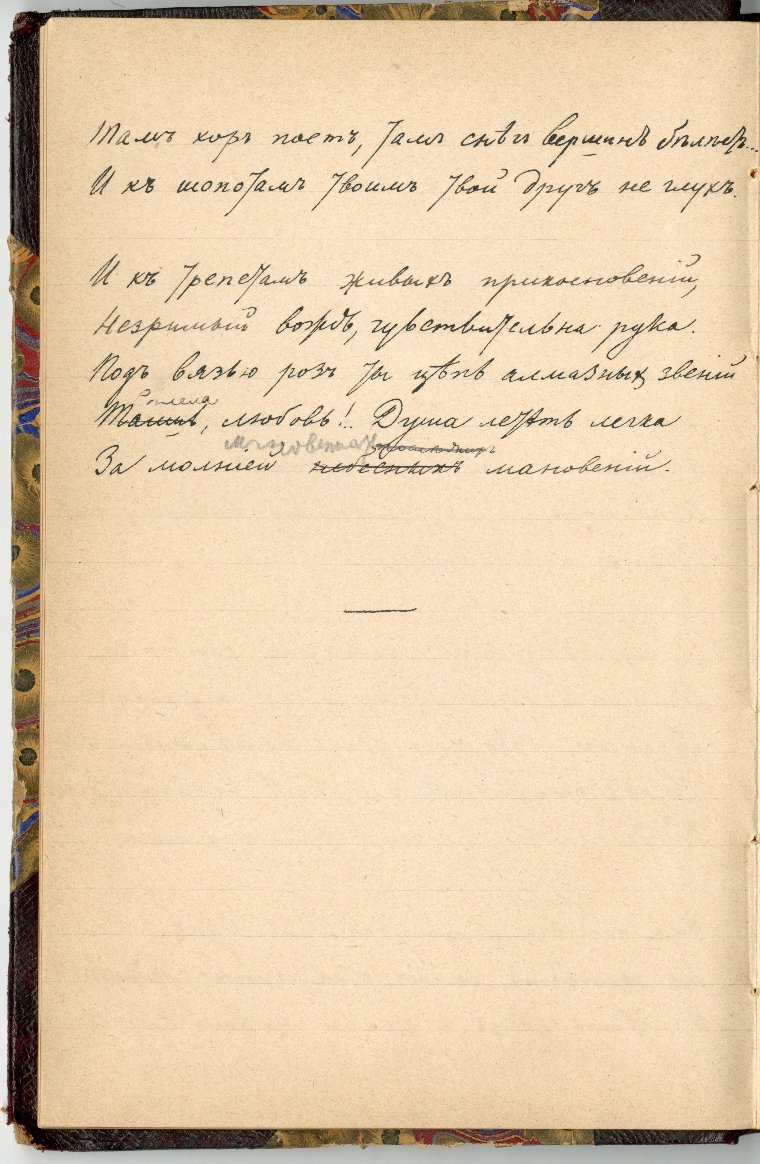 Тамъ хоръ поетъ, тамъ снѣгъ вершинъ бѣлѣетъ...
И къ шопотамъ твоимъ твой другъ не глухъ.
И къ трепетамъ живыхъ прикосновеній,
Незримый вождь, чувствительна рука.
Подъ вязью розъ ты цѣпь алмазныхъ звеній
сплела
Таишь, любовь!.. Душа летѣть легка
мгновенных
За молніей небесныхъ мановеній.